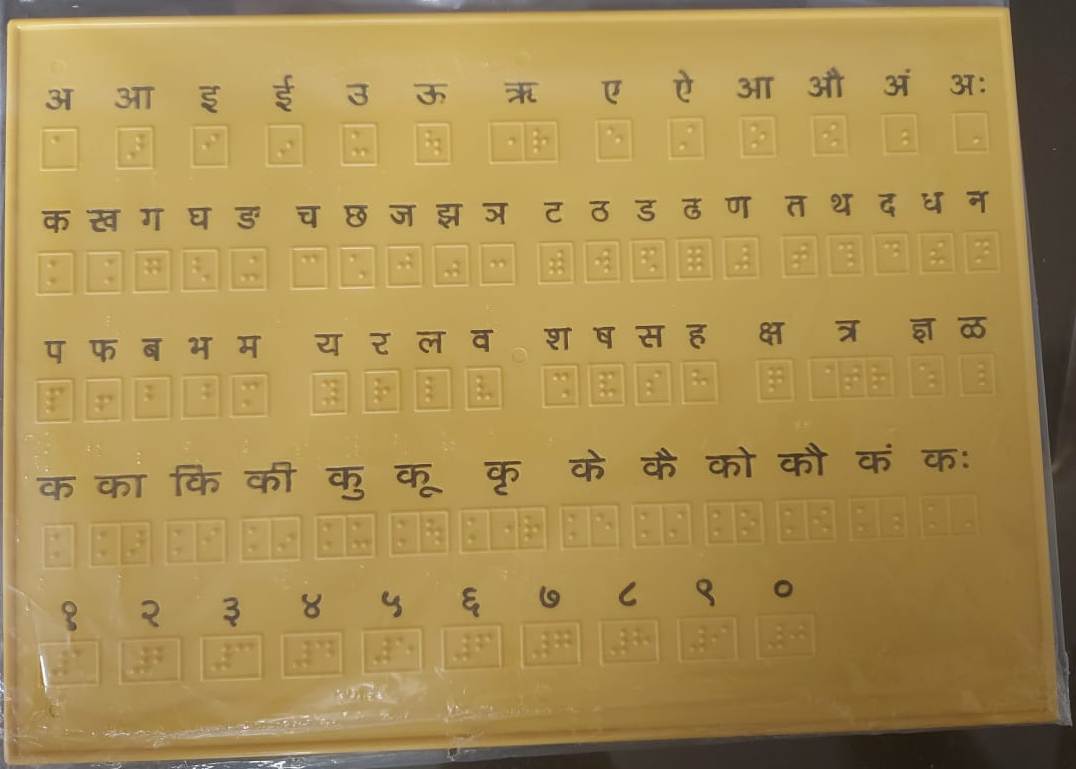 अ आ इ ई उ ऊ ऋ ए ऐ आ औ अं अः
क ख ग घ ङ च छ ज झ ञ ट ठ ड ढ ण त थ द ध न
प फ ब भ म य र ल व श ष स ह क्ष त्र ज्ञ ळ
क का कि की कु कू कृ के कै को कौ कं कः
१ २ ३ ४ ५ ६ ७ ८ ९ ०